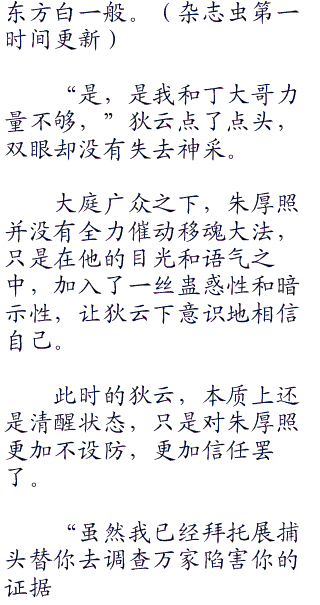 东方白一般。（杂志虫第一
时间更新）
“是，是我和丁大哥力
量不够，”狄云点了点头，
双眼却没有失去神采。
大庭广众之下，朱厚照
并没有全力催动移魂大法，
只是在他的目光和语气之
中，加入了一丝蛊惑性和暗
示性，让狄云下意识地相信
自己。
此时的狄云，本质上还
是清醒状态，只是对朱厚照
更加不设防，更加信任罢
了。
“虽然我已经拜托展捕
头替你去调查万家陷害你的
证据